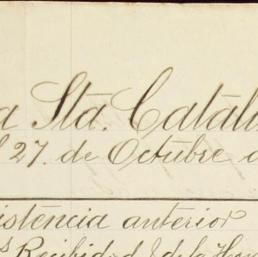 a Sta. Catali
l 27. de Octubre d
istencia anterior
s Recibidad de la Ha